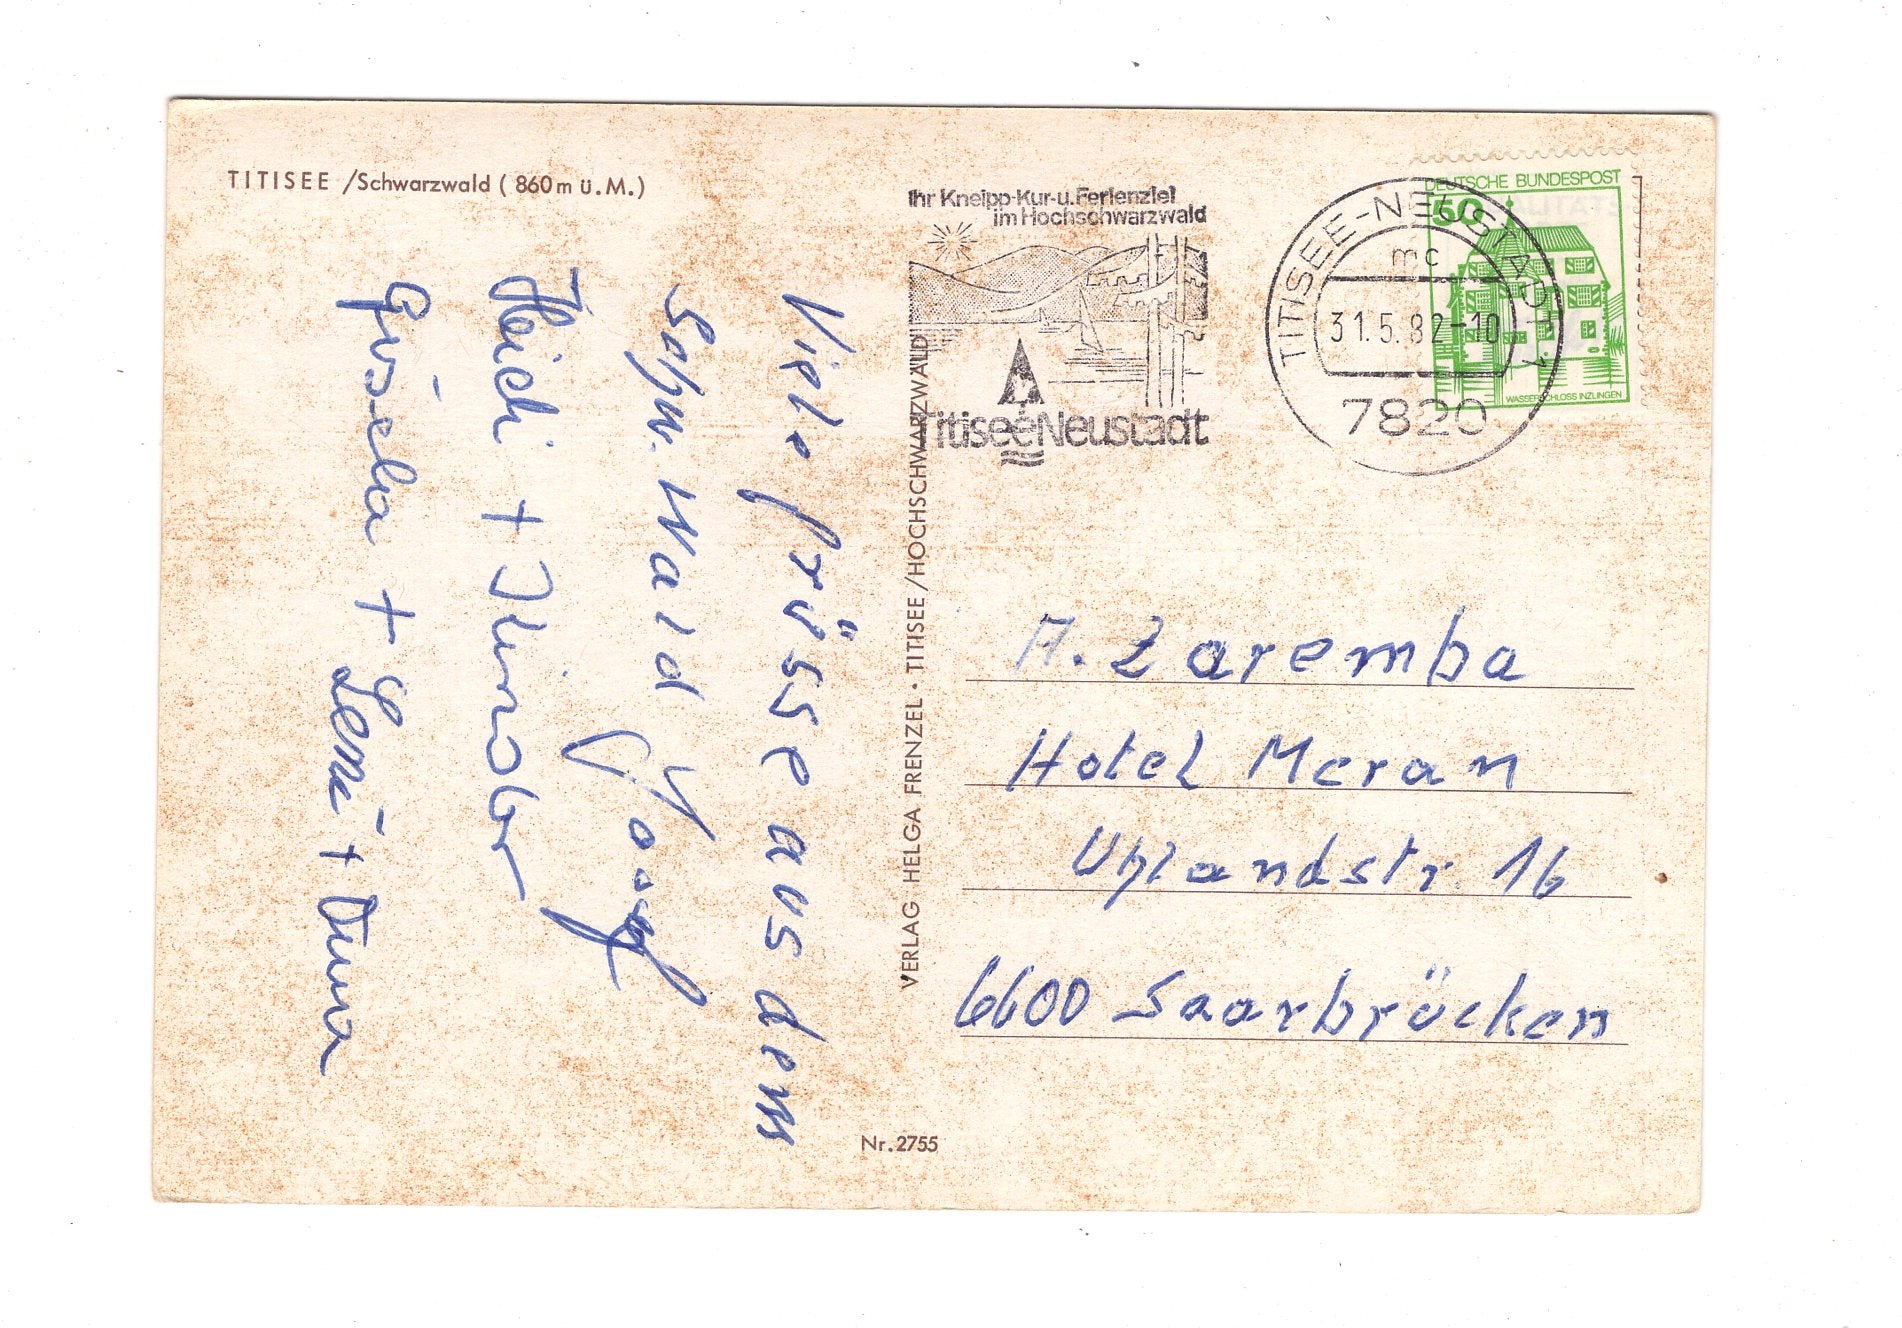 TITISEE /Schwarzwald ( 860 m ü. M.)
Viele Grüsse aus dem
Schw. Wald Josef
Heidi +
Gisela + Leni +
VERLAG HELGA FRENZEL · TITISEE/HOCHSCHWARZWALD
Nr. 2755
Ihr Kneipp-Kur-u. Ferienziel
im Hochschwarzwald
Titisee Neustadt
TITISEE-NEUSTADT 1
mc
31.5.82-10
7820
DEUTSCHE BUNDESPOST
50
WASSERSCHLOSS INZLINGEN
A. Zaremba
Hotel Meran
Uhlandstr. 16
6600 Saarbrücken